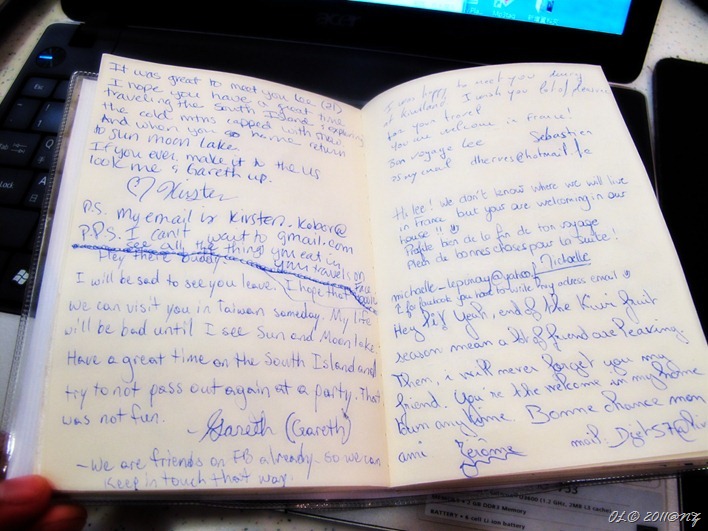 It was great to meet you Lee (21)
I hope you have a great time
traveling the South Island & exploring
the cold mtns capped with snow.
And when you go home return
to sun moon lake
If you ever make it to the US
look me & Gareth up.
♡ Kirsten
P.S. my email is Kirsten.Kobor@
gmail.com
P.P.S. I can't want to
see all the thing you eat in
your travels on
Face
Hey there buddy
I will be sad to see you leave. I hope that
we can visit you in Taiwan someday. My life
will be bad until I see Sun and Moon lake.
Have a great time on the South Island and
try to not pass out again at a party. That
was not fun.
- Gareth (Gareth)
- We are friends on FB already. So we can
keep in touch that way.
I was happy to meet you during
at Kiwiland I wish you lot of
for your travel
You are welcome in France!
Bon voyage Lee Sebastien
as my email dherves@hotmail.fr
Hi lee! We don't know where we will live
in France but you are welcoming in our
house!!
Profite bien de la fin de ton voyage
Plein de bonnes choses pour la suite!
Michaelle
michaelle_lepinay@yahoo.f
& for facebook you have to write my adress email
Hey Yeah, end of the Kiwi fruit
season mean a lot of friend are leaving.
Then, i will never forget you my
friend. You're the welcome in my home
town anytime. Bonne chance mon
ami Jérôme mail: @
acer
Esc
Tab
Caps
OL© 2011@NZ